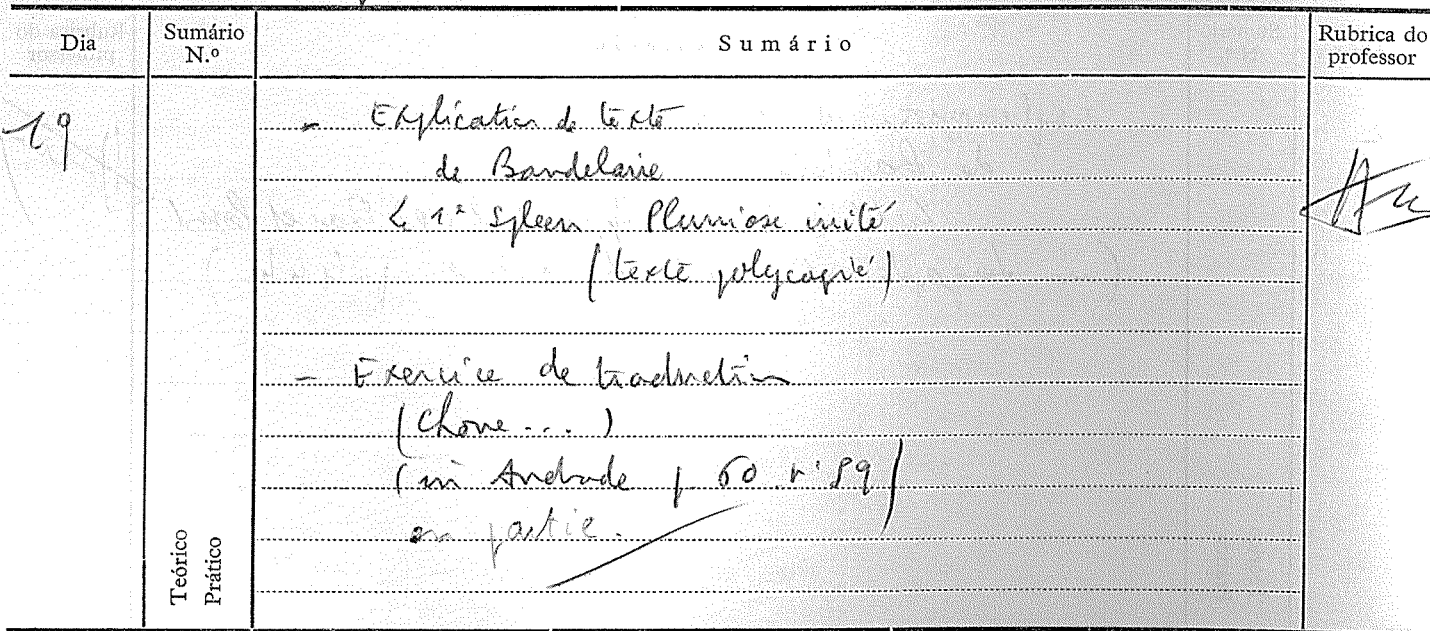 Dia
Sumário N.º
Sumário
Rubrica do professor
19
- Explication de texte
de Baudelaire
1º Spleen Pluviose irrité
(texte polycopié)
- Exercice de traduction
(Chove...)
(in Andrade p 60 nº 59)
en partie.
Teórico
Prático